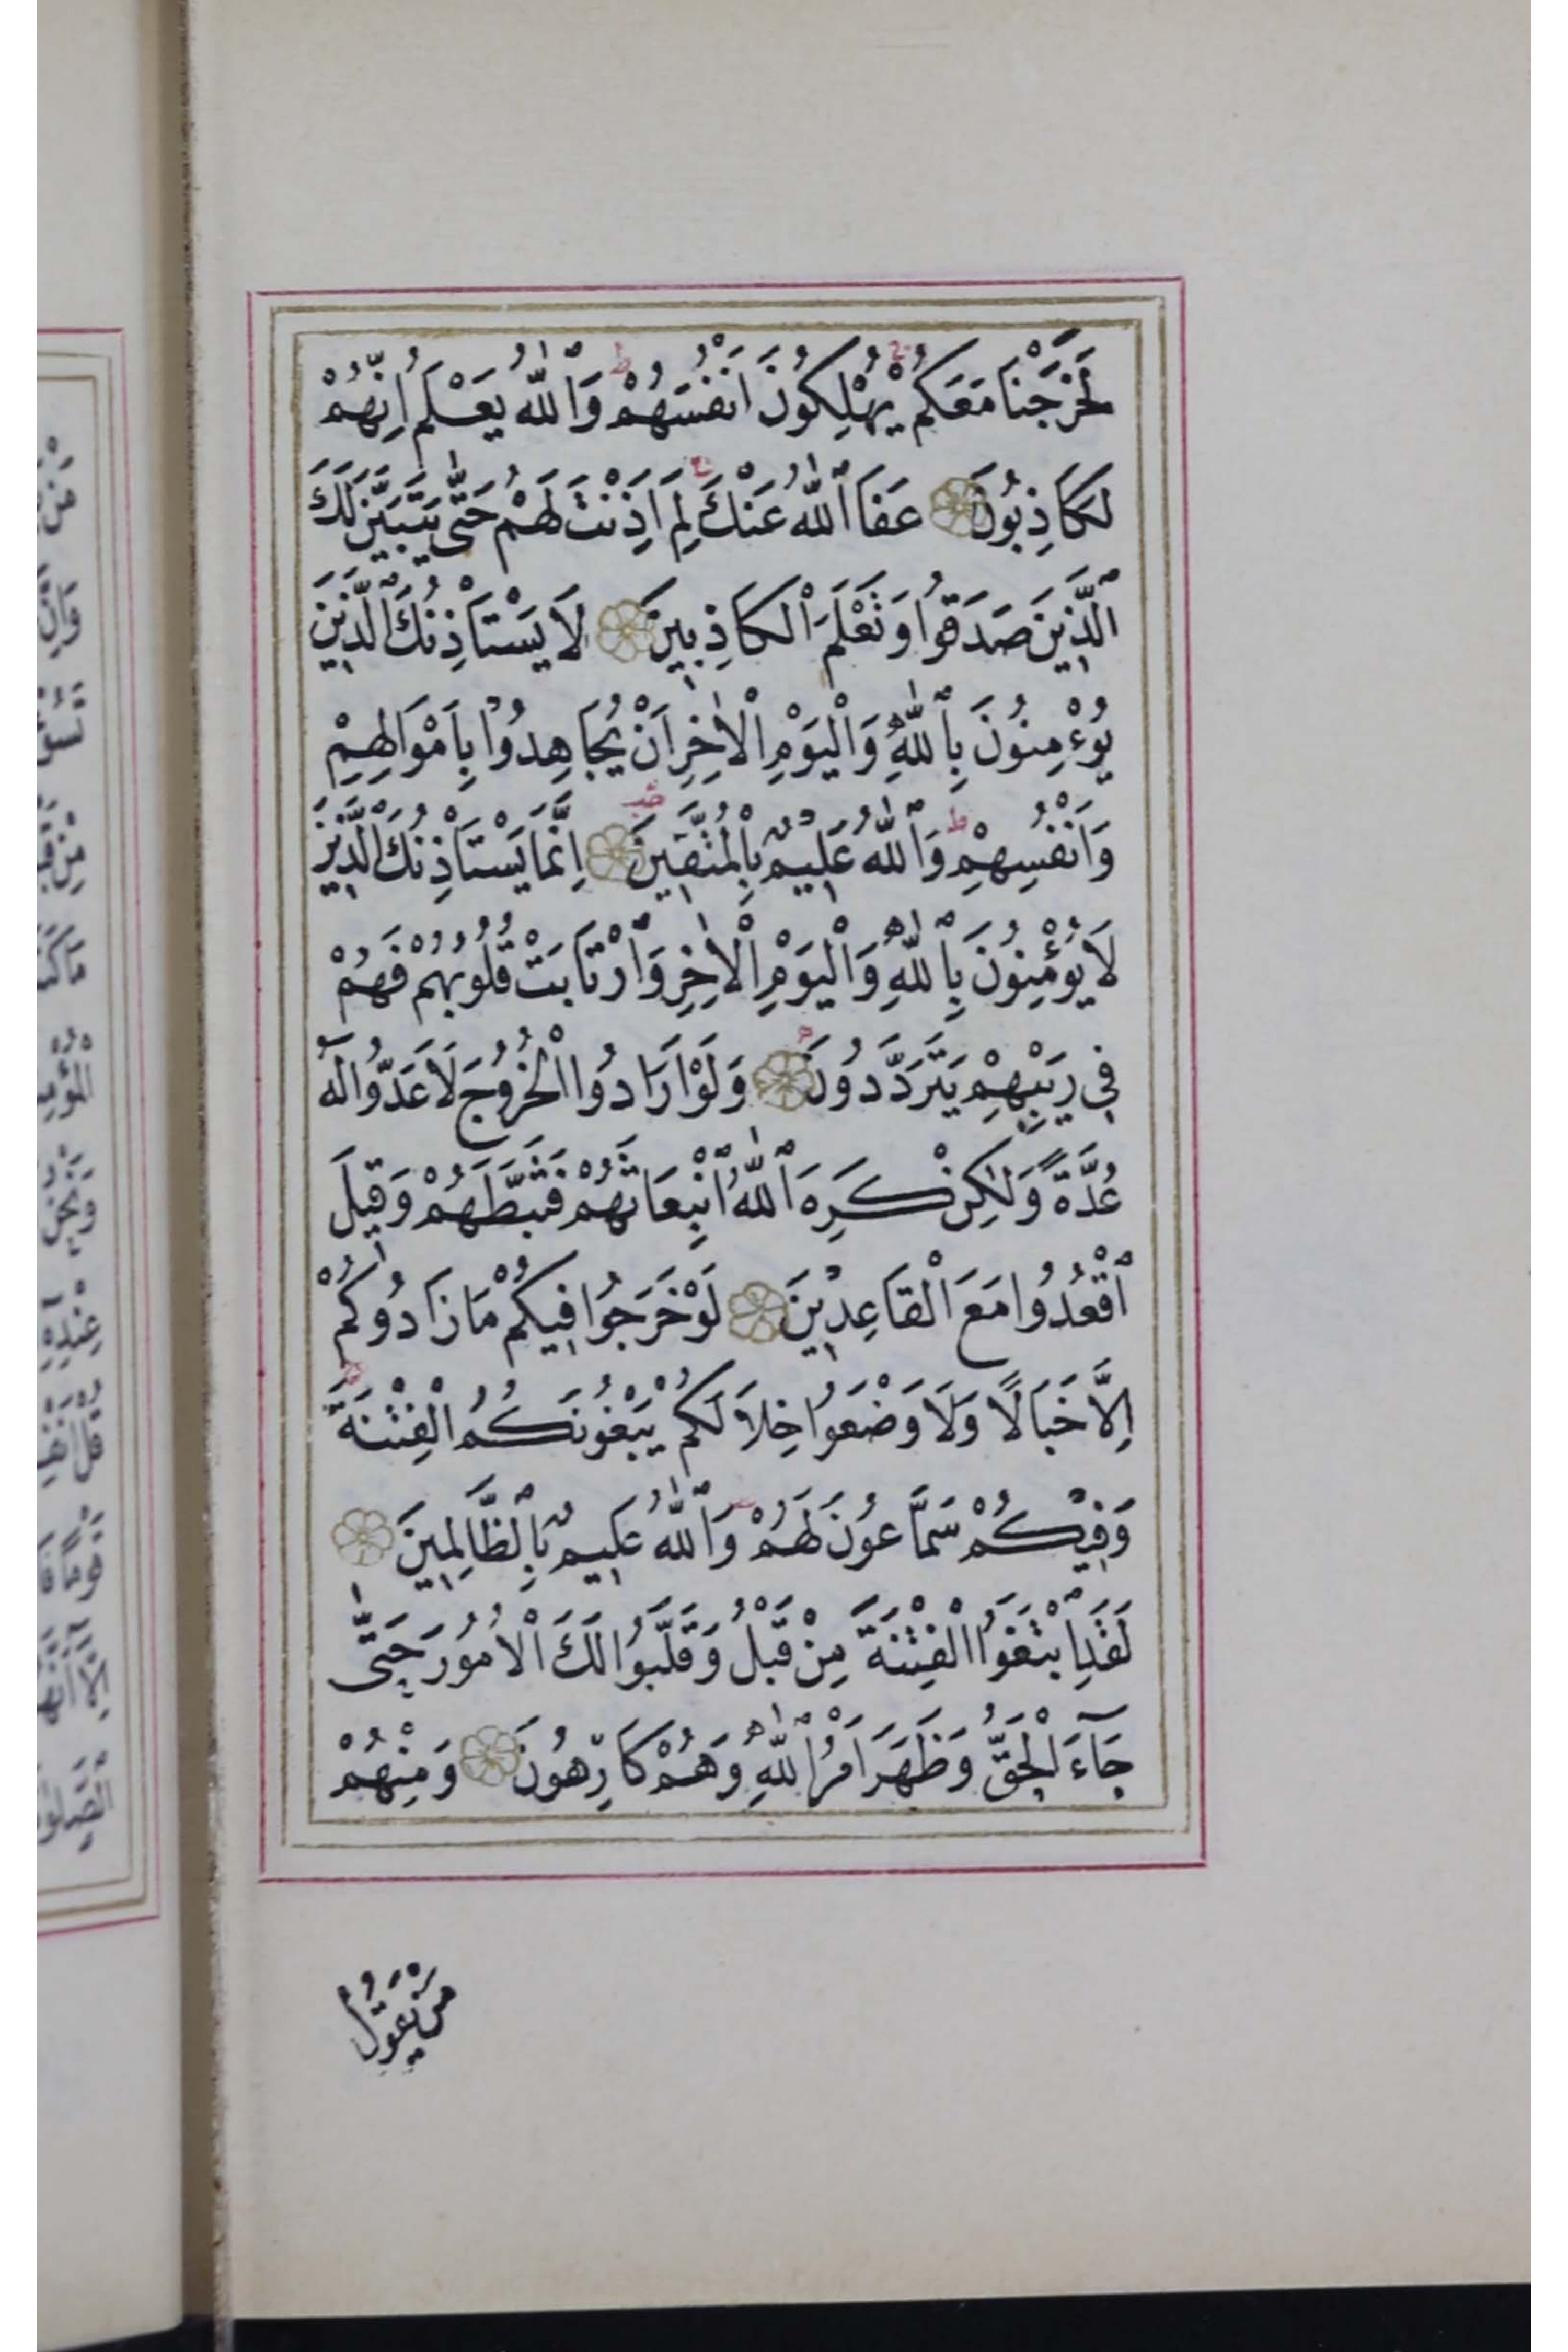 لَخَرَجْنَا مَعَكُمْ يُهْلِكُونَ اَنْفُسَهُمْ وَٱللّٰهُ يَعْلَمُ اِنَّهُمْ
لَكَاذِبُونَ عَفَا ٱللّٰهُ عَنْكَ لِمَ اَذِنْتَ لَهُمْ حَتّٰى يَتَبَيَّنَ لَكَ
ٱلَّذِينَ صَدَقُوا وَتَعْلَمَ ٱلْكَاذِبِينَ لَا يَسْتَاْذِنُكَ ٱلَّذِينَ
يُوْءْمِنُونَ بِٱللّٰهِ وَالْيَوْمِ الْاٰخِرِ اَنْ يُجَاهِدُوا بِاَمْوَالِهِمْ
وَاَنْفُسِهِمْ وَٱللّٰهُ عَلِيمٌ بِالْمُتَّقِينَ اِنَّمَا يَسْتَاْذِنُكَ ٱلَّذِينَ
لَا يُؤْمِنُونَ بِٱللّٰهِ وَالْيَوْمِ الْاٰخِرِ وَٱرْتَابَتْ قُلُوبُهُمْ فَهُمْ
فِي رَيْبِهِمْ يَتَرَدَّدُونَ وَلَوْ اَرَادُوا الْخُرُوجَ لَاَعَدُّوا لَهُ
عُدَّةً وَلٰكِنْ كَرِهَ ٱللّٰهُ ٱنْبِعَاثَهُمْ فَثَبَّطَهُمْ وَقِيلَ
ٱقْعُدُوا مَعَ الْقَاعِدِينَ لَوْ خَرَجُوا فِيكُمْ مَا زَادُوكُمْ
اِلَّا خَبَالًا وَلَا وَضَعُوا خِلَالَكُمْ يَبْغُونَكُمُ الْفِتْنَةَ
وَفِيكُمْ سَمَّاعُونَ لَهُمْ وَٱللّٰهُ عَلِيمٌ بِٱلظَّالِمِينَ
لَقَدِ ٱبْتَغَوُا الْفِتْنَةَ مِنْ قَبْلُ وَقَلَّبُوا لَكَ الْاُمُورَ حَتّٰى
جَآءَ الْحَقُّ وَظَهَرَ اَمْرُ ٱللّٰهِ وَهُمْ كَارِهُونَ وَمِنْهُمْ
مَنْ يَقُولُ